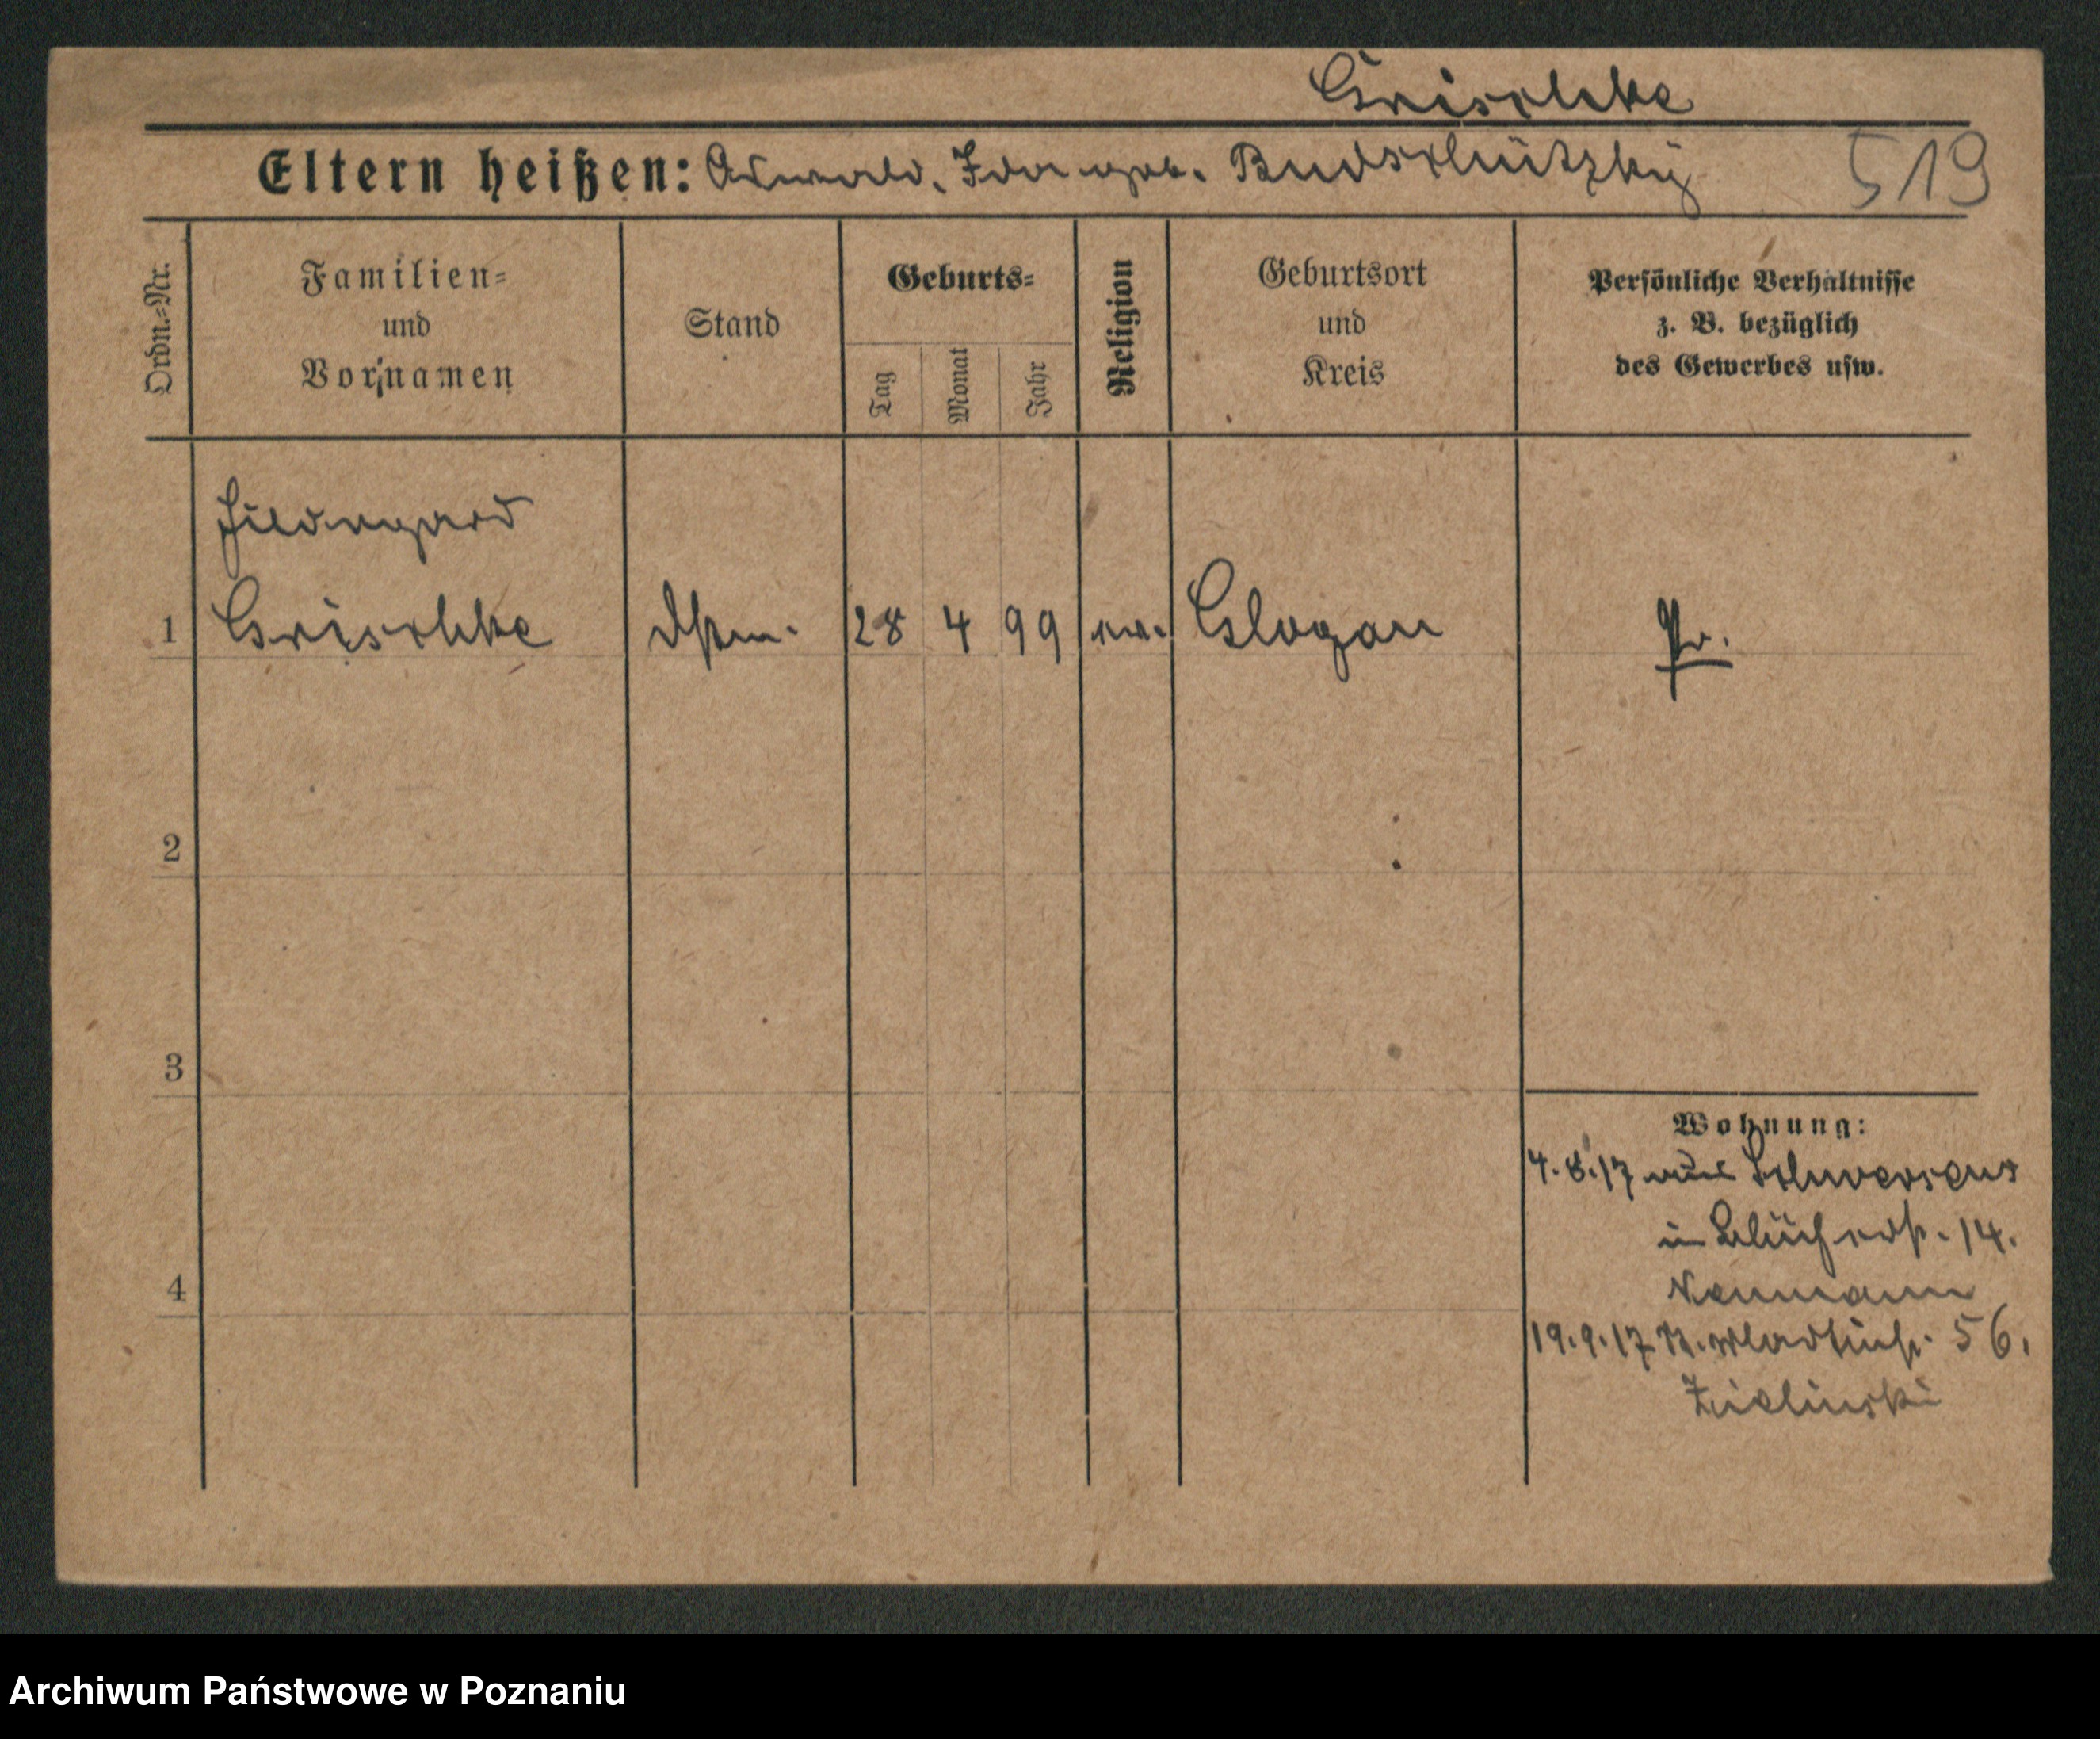 Grischke
Eltern heißen: Oswald, Ida geb. Budschützky
519
Ordn.=Nr.
Familien=
und
Vornamen
Stand
Geburts=
Tag
Monat
Jahr
Religion
Geburtsort
und
Kreis
Persönliche Verhältnisse
z. B. bezüglich
des Gewerbes usw.
Hildegard
1 Grischke 28 4 99 ev. Glogau Pr.
2
3
4
Wohnung:
4.8.17 aus Schwersenz
in Blücherstr. 14.
Naumann
19.9.17 56.
Zielinski
Archiwum Państwowe w Poznaniu